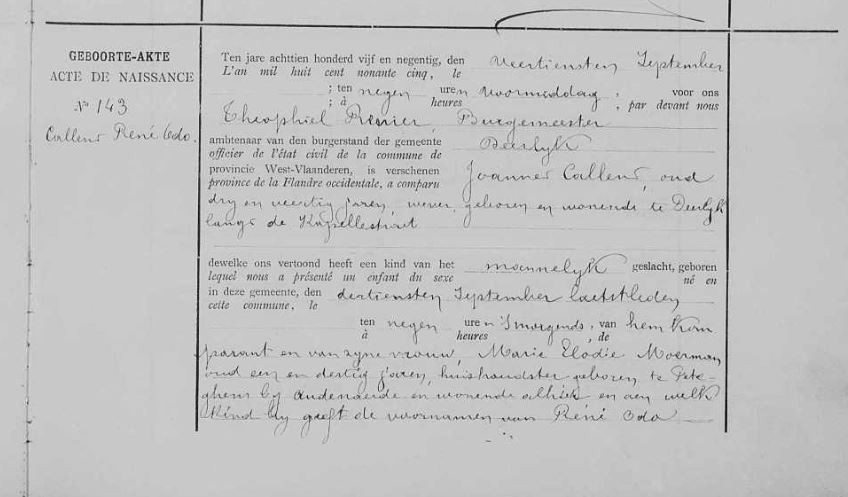 GEBOORTE-AKTE
ACTE DE NAISSANCE
N° 143
Callens René Odo.
Ten jare achttien honderd vijf en negentig, den veertiensten September
L'an mil huit cent nonante cinq, le
; ten negen uren voormiddag, voor ons
; à heures , par devant nous
Theophiel Renier, Burgemeester
ambtenaar van den burgerstand der gemeente Deerlyk
officier de l'état civil de la commune de
provincie West-Vlaanderen, is verschenen Joannes Callens, oud
province de la Flandre occidentale, a comparu
dry en veertig jaren, wever, geboren en wonende te Deerlyk
langs de Kapellestraat
dewelke ons vertoond heeft een kind van het mannelyk geslacht, geboren
lequel nous a présenté un enfant du sexe né en
in deze gemeente, den dertiensten September laetstleden
cette commune, le
ten negen uren 's morgends, van hem kom
à heures , de
parant en van zyne vrouw, Marie Elodie Moerman
oud een en dertig jaren, huishoudster geboren te Pete-
ghem by Audenaerde en wonende alhier en aen welk
kind hy geeft de voornamen van René Odo